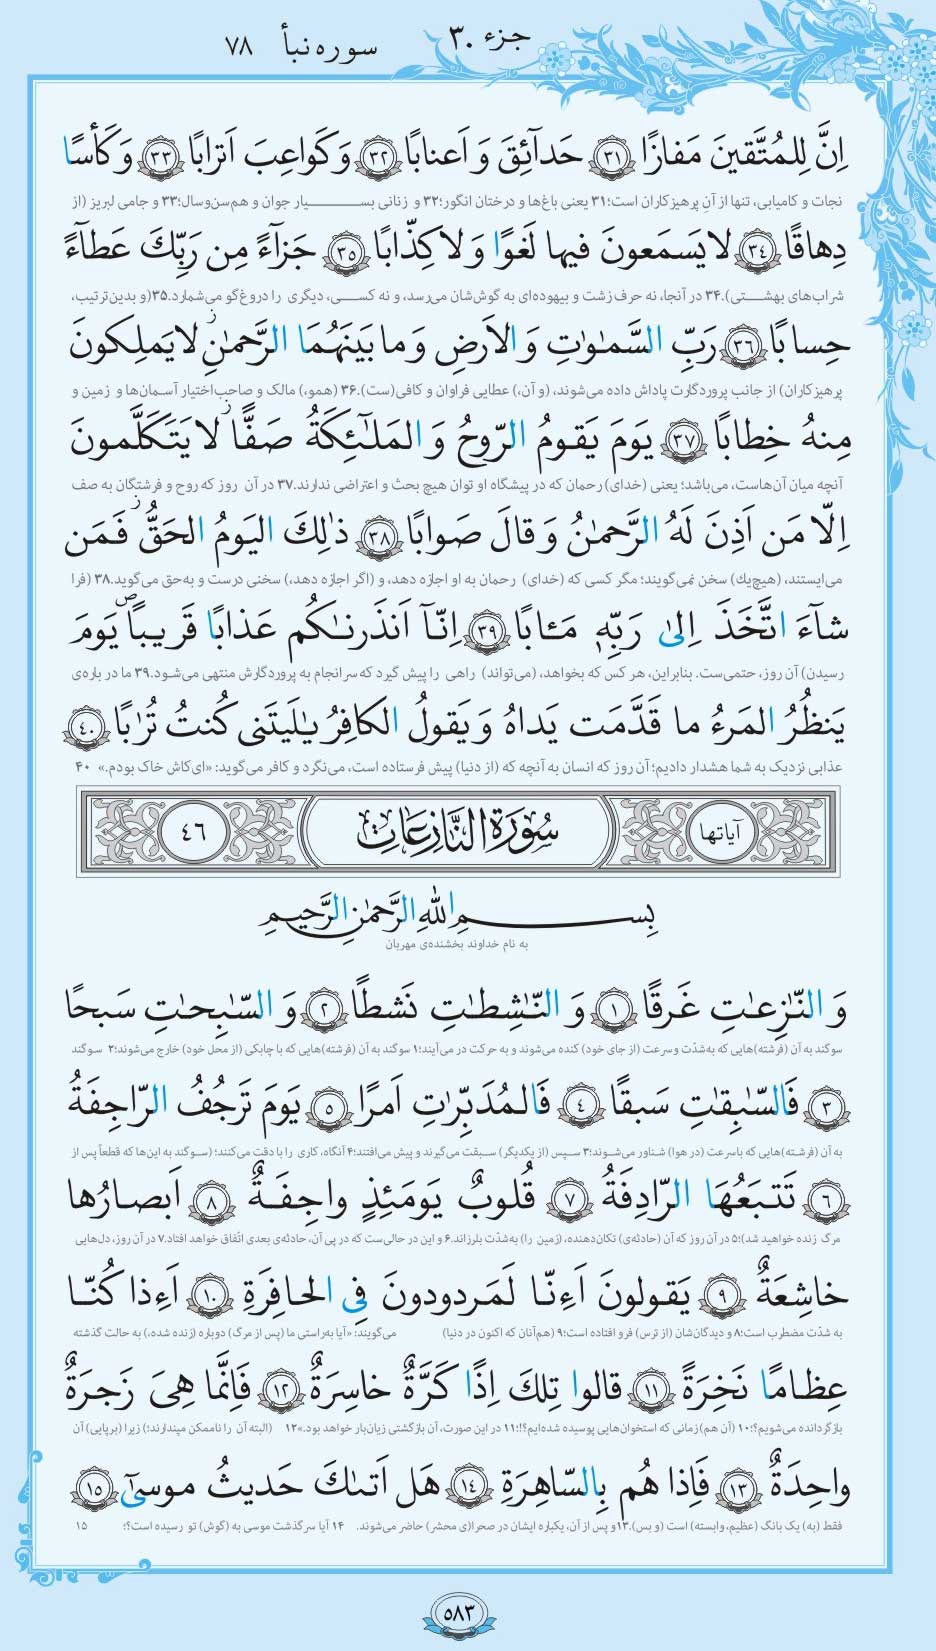 جزء ۳۰
سوره نبأ ۷۸
اِنَّ لِلمُتَّقينَ مَفازًا ﴿٣١﴾ حَدآئِقَ وَ اَعنابًا ﴿٣٢﴾ وَ كَواعِبَ اَترابًا ﴿٣٣﴾ وَ كَأسًا
نجات و کامیابی، تنها از آنِ پرهیزکاران است؛۳۱ یعنی باغ‌ها و درختان انگور؛۳۲ و زنانی بسیار جوان و هم‌سن‌وسال؛۳۳ و جامی لبریز (از
دِهاقًا ﴿٣٤﴾ لا يَسمَعونَ فيها لَغوًا وَ لا كِذّابًا ﴿٣٥﴾ جَزآءً مِن رَبِّكَ عَطآءً
شراب‌های بهشتی).۳۴ در آنجا، نه حرف زشت و بیهوده‌ای به گوش‌شان می‌رسد، و نه کسی، دیگری را دروغ‌گو می‌شمارد.۳۵(و بدین‌ترتیب،
حِسابًا ﴿٣٦﴾ رَبِّ السَّمٰوٰتِ وَ الاَرضِ وَ ما بَينَهُمَا الرَّحمٰنِ ۖ لا يَملِكونَ
پرهیزکاران) از جانب پروردگارت پاداش داده می‌شوند، (و آن،) عطایی فراوان و کافی(ست).۳۶ (همو،) مالک و صاحب‌اختیار آسمان‌ها و زمین و
مِنهُ خِطابًا ﴿٣٧﴾ يَومَ يَقومُ الرّوحُ وَ المَلٰٓئِكَةُ صَفًّا ز لا يَتَكَلَّمونَ
آنچه میان آن‌هاست، می‌باشد؛ یعنی (خدای) رحمان که در پیشگاه او توان هیچ بحث و اعتراضی ندارند.۳۷ در آن روز که روح و فرشتگان به صف
اِلّا مَن اَذِنَ لَهُ الرَّحمٰنُ وَ قالَ صَوابًا ﴿٣٨﴾ ذٰلِكَ اليَومُ الحَقُّ ز فَمَن
می‌ایستند، (هیچ‌یك) سخن نمی‌گویند؛ مگر کسی که (خدای) رحمان به او اجازه دهد، و (اگر اجازه دهد،) سخنی درست و به‌حق می‌گوید.۳۸ (فرا
شآءَ اتَّخَذَ اِلىٰ رَبِّهٖ مَـٔابًا ﴿٣٩﴾ اِنّآ اَنذَرنٰكُم عَذابًا قَريبًا ص يَومَ
رسیدن) آن روز، حتمی‌ست. بنابراین، هر کس که بخواهد، (می‌تواند) راهی را پیش گیرد که سرانجام به پروردگارش منتهی می‌شود.۳۹ ما در باره‌ی
يَنظُرُ المَرءُ ما قَدَّمَت يَداهُ وَ يَقولُ الكافِرُ يٰلَيتَنى كُنتُ تُرٰبًا ﴿٤٠﴾
عذابی نزدیک به شما هشدار دادیم؛ آن روز که انسان به آنچه که (از دنیا) پیش فرستاده است، می‌نگرد و کافر می‌گوید: «ای‌کاش خاک بودم.» ۴۰
آیاتها سُورَةُ النَّازِعَات ٤٦
بِسمِ اللّٰهِ الرَّحمٰنِ الرَّحيمِ
به نام خداوند بخشنده‌ی مهربان
وَ النّٰزِعٰتِ غَرقًا ﴿١﴾ وَ النّٰشِطٰتِ نَشطًا ﴿٢﴾ وَ السّٰبِحٰتِ سَبحًا
سوگند به آن (فرشته)هایی که به‌شدّت و سرعت (از جای خود) کنده می‌شوند و به حرکت در می‌آیند؛۱ سوگند به آن (فرشته)هایی که با چابکی (از محل خود) خارج می‌شوند؛۲ سوگند
﴿٣﴾ فَالسّٰبِقٰتِ سَبقًا ﴿٤﴾ فَالمُدَبِّرٰتِ اَمرًا ﴿٥﴾ يَومَ تَرجُفُ الرّاجِفَةُ
به آن (فرشته)هایی که باسرعت (در هوا) شناور می‌شوند؛۳ سپس (از یکدیگر) سبقت می‌گیرند و پیش می‌افتند؛۴ آنگاه، کاری را با دقت می‌کنند؛ (سوگند به این‌ها که قطعاً پس از
﴿٦﴾ تَتبَعُهَا الرّادِفَةُ ﴿٧﴾ قُلوبٌ يَومَئِذٍ واجِفَةٌ ﴿٨﴾ اَبصارُها
مرگ زنده خواهید شد)؛۵ در آن روز که آن (حادثه‌ی) تکان‌دهنده، (زمین را) به‌شدّت بلرزاند.۶ و این در حالی‌ست که در پی آن، حادثه‌ی بعدی اتّفاق خواهد افتاد.۷ در آن روز، دل‌هایی
خاشِعَةٌ ﴿٩﴾ يَقولونَ اَءِنّا لَمَردودونَ فِى الحافِرَةِ ﴿١٠﴾ اَءِذا كُنّا
به شدّت مضطرب است؛۸ و دیدگان‌شان (از ترس) فرو افتاده است؛۹ (هم‌آنان که اکنون در دنیا) می‌گویند: «آیا به‌راستی ما (پس از مرگ) دوباره (زنده شده،) به حالت گذشته
عِظامًا نَخِرَةً ﴿١١﴾ قالوا تِلكَ اِذًا كَرَّةٌ خاسِرَةٌ ﴿١٢﴾ فَاِنَّما هِىَ زَجرَةٌ
بازگردانده می‌شویم؟!۱۰ (آن هم) زمانی که استخوان‌هایی پوسیده شده‌ایم؟!؛۱۱ در این صورت، آن بازگشتی زیان‌بار خواهد بود.»۱۲ (البته آن را ناممکن مپندارند؛) زیرا (برپایی) آن
واحِدَةٌ ﴿١٣﴾ فَاِذا هُم بِالسّاهِرَةِ ﴿١٤﴾ هَل اَتىٰكَ حَديثُ موسىٰٓ ﴿١٥﴾
فقط (به) یک بانگ (عظیم، وابسته) است (و بس).۱۳و پس از آن، یکباره ایشان در صحرا(ی محشر) حاضر می‌شوند. ۱۴ آیا سرگذشت موسی به (گوش) تو رسیده است؟؛ ۱۵
٥٨٣